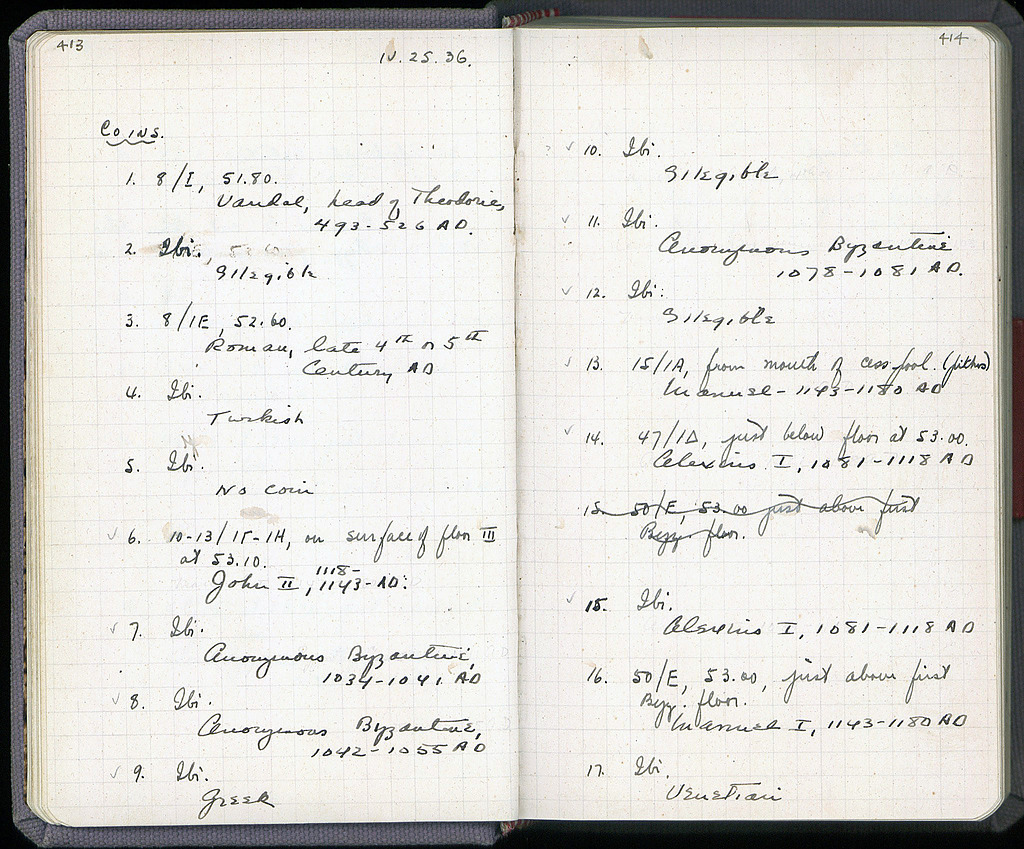 413
IV. 25. 36.
Coins.
1. 8/I, 51.80.
Vandal, head of Theodoric,
493-526 AD.
2. Ibi.,
Illegible
3. 8/1E, 52.60.
Roman, late 4th or 5th
Century AD
4. Ibi.
Turkish
5. Ibi.
No coin
6. 10-13/15-1H, on surface of floor III
at 53.10.
1118-
John II, 1143- AD.
7. Ibi.
Anonymous Byzantine,
1034-1041 AD
8. Ibi.
Anonymous Byzantine,
1042-1055 AD
9. Ibi.
Greek
414
10. Ibi.
Illegible
11. Ibi.
Anonymous Byzantine
1078-1081 AD.
12. Ibi.
Illegible
13. 15/1A, from mouth of cess-pool. (pithos)
Manuel - 1143-1180 AD
14. 47/1D, just below floor at 53.00.
Alexius I, 1081-1118 AD
15. 50/E, 53.00 just above first
Byz. floor.
15. Ibi.
Alexius I, 1081-1118 AD
16. 50/E, 53.00, just above first
Byz. floor.
Manuel I, 1143-1180 AD
17. Ibi.
Venetian